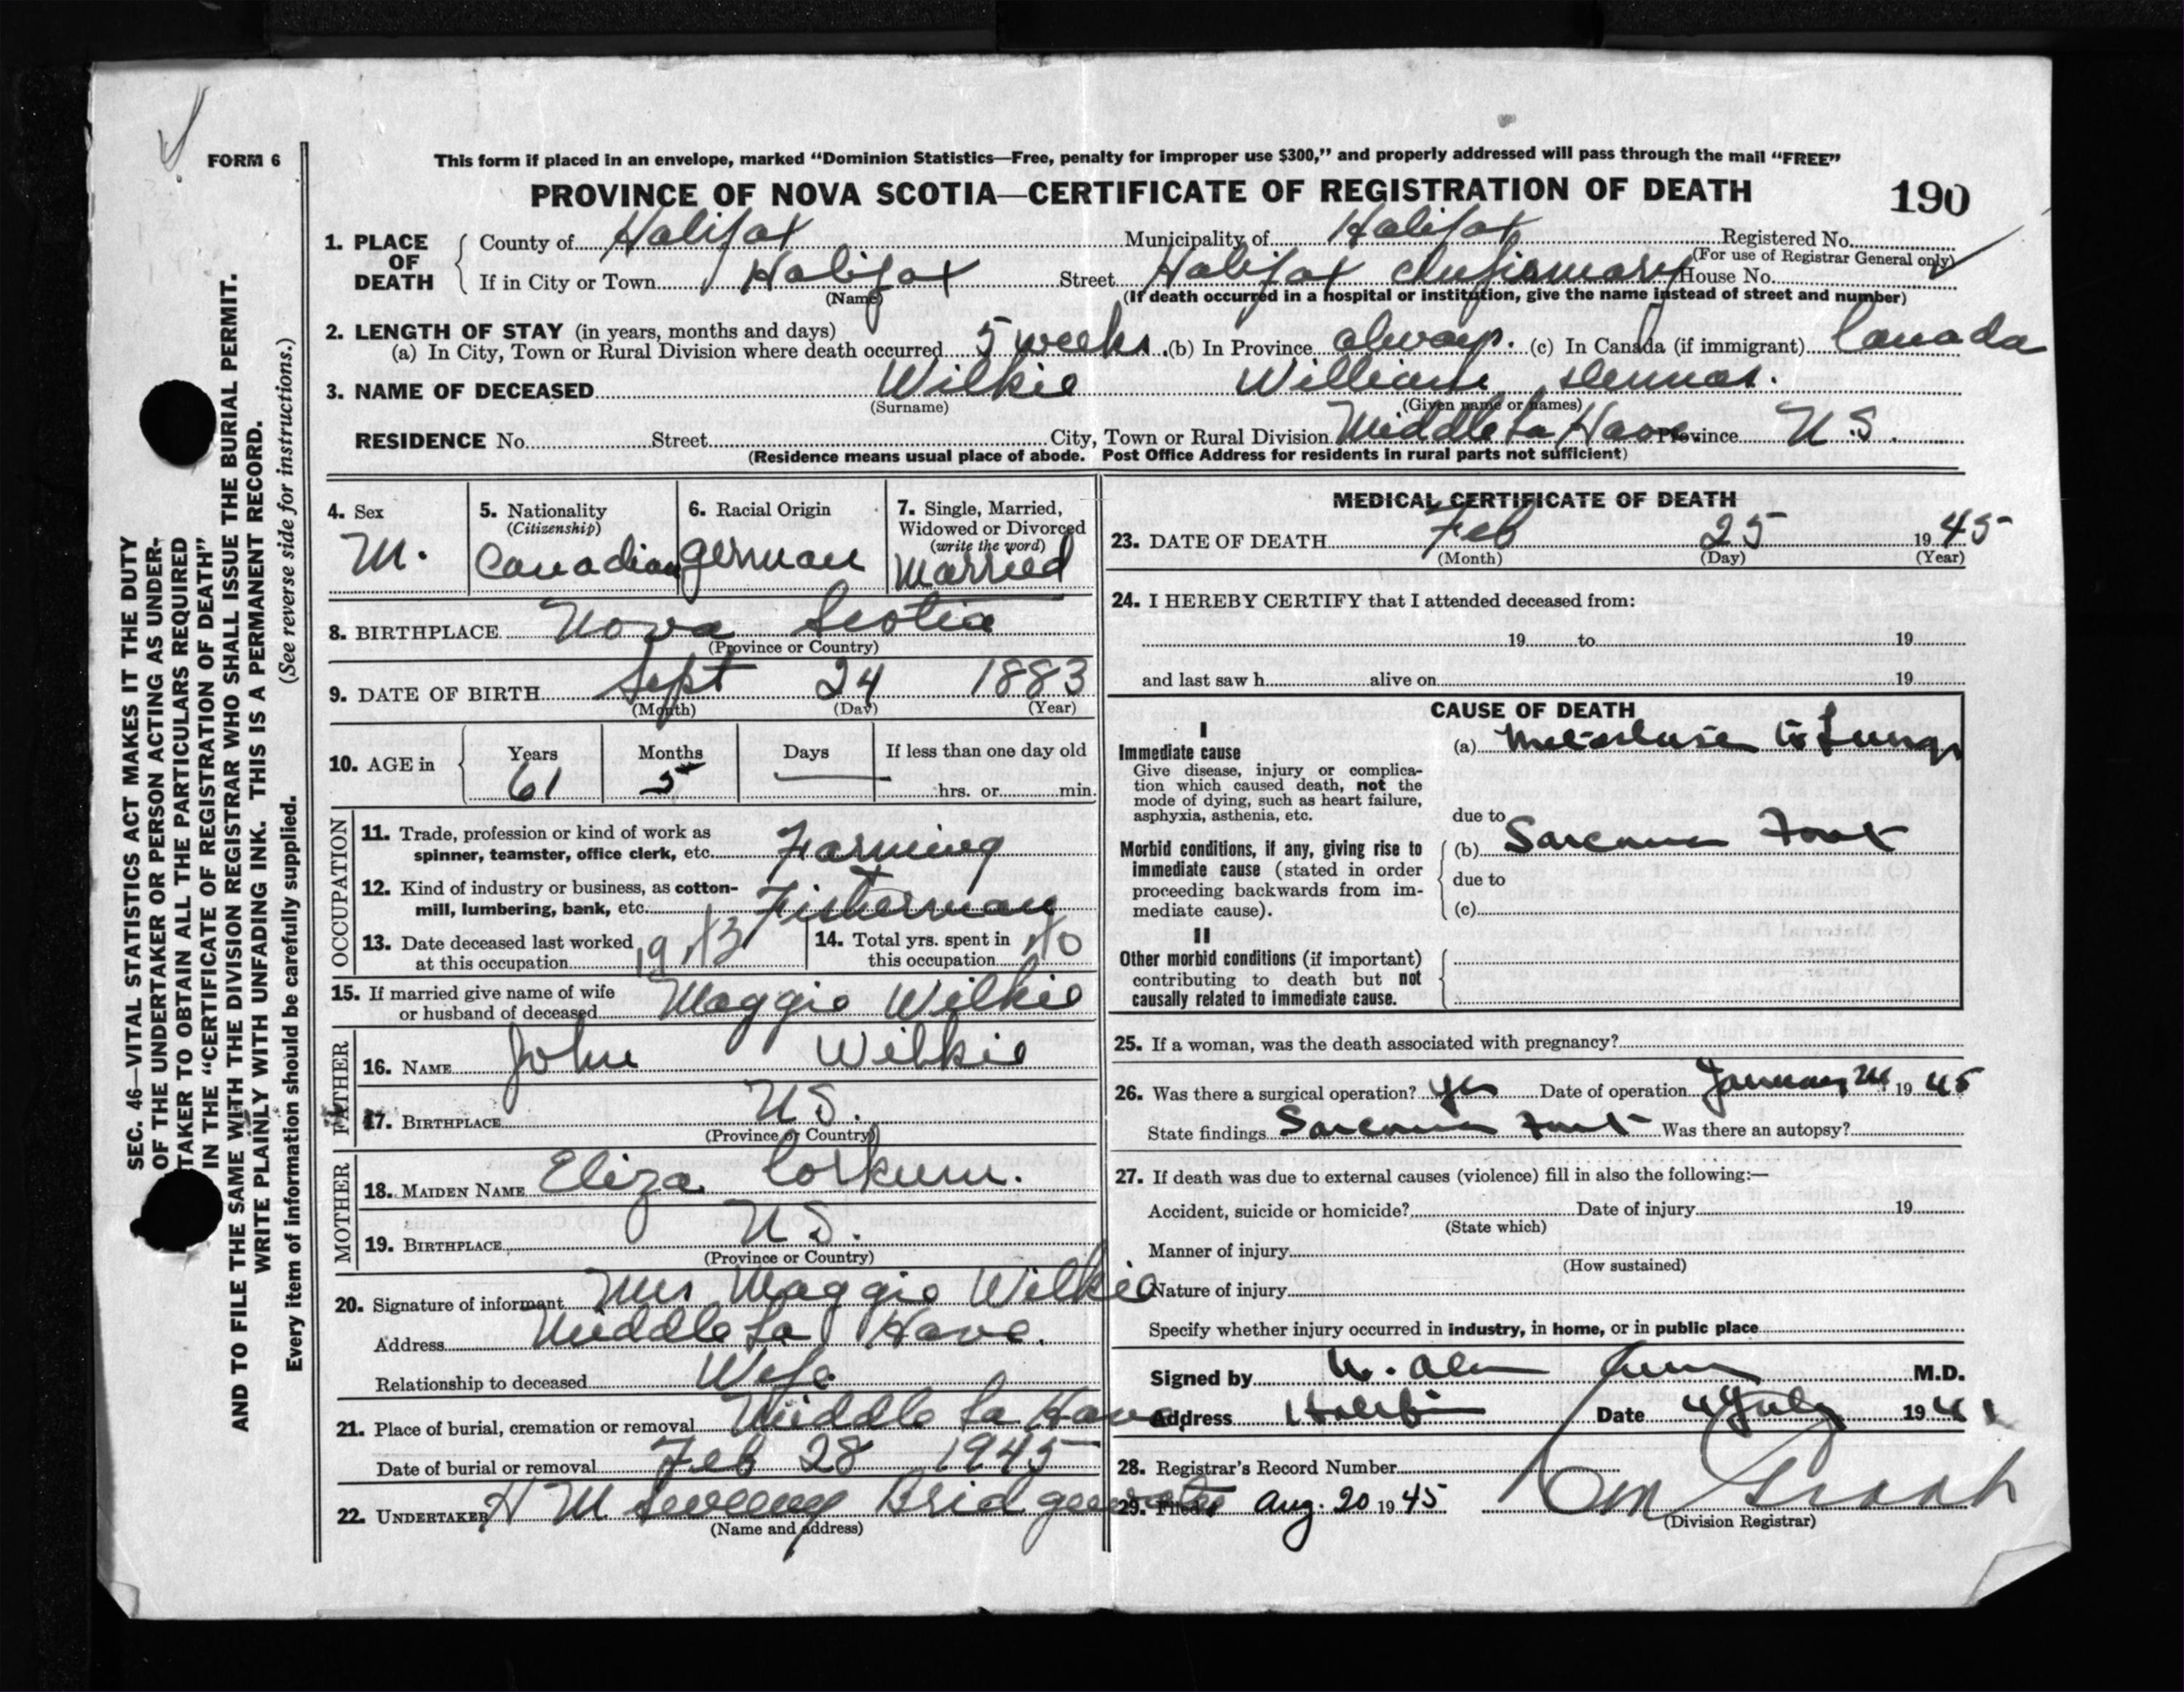 FORM 6
This form if placed in an envelope, marked "Dominion Statistics—Free, penalty for improper use $300," and properly addressed will pass through the mail "FREE"
PROVINCE OF NOVA SCOTIA—CERTIFICATE OF REGISTRATION OF DEATH
190
SEC. 46—VITAL STATISTICS ACT MAKES IT THE DUTY
OF THE UNDERTAKER OR PERSON ACTING AS UNDER-
TAKER TO OBTAIN ALL THE PARTICULARS REQUIRED
IN THE "CERTIFICATE OF REGISTRATION OF DEATH"
AND TO FILE THE SAME WITH THE DIVISION REGISTRAR WHO SHALL ISSUE THE BURIAL PERMIT.
WRITE PLAINLY WITH UNFADING INK. THIS IS A PERMANENT RECORD.
Every item of information should be carefully supplied. (See reverse side for instructions.)
1. PLACE OF DEATH
County of Halifax Municipality of Halifax Registered No.
(For use of Registrar General only)
If in City or Town Halifax Street Halifax Infirmary House No.
(Name) (If death occurred in a hospital or institution, give the name instead of street and number)
2. LENGTH OF STAY (in years, months and days)
(a) In City, Town or Rural Division where death occurred 5 weeks (b) In Province always. (c) In Canada (if immigrant) Canada
3. NAME OF DECEASED Wilkie William
(Surname) (Given name or names)
RESIDENCE No. Street City, Town or Rural Division Middle La Have Province N.S.
(Residence means usual place of abode. Post Office Address for residents in rural parts not sufficient)
4. Sex
M.
5. Nationality
(Citizenship)
Canadian
6. Racial Origin
German
7. Single, Married,
Widowed or Divorced
(write the word)
Married
8. BIRTHPLACE Nova Scotia
(Province or Country)
9. DATE OF BIRTH Sept 24 1883
(Month) (Day) (Year)
10. AGE in
Years Months Days If less than one day old
61 5 — hrs. or min.
OCCUPATION
11. Trade, profession or kind of work as
spinner, teamster, office clerk, etc. Farming
12. Kind of industry or business, as cotton-
mill, lumbering, bank, etc. Fisherman
13. Date deceased last worked
at this occupation 1943
14. Total yrs. spent in
this occupation 40
15. If married give name of wife
or husband of deceased Maggie Wilkie
FATHER
16. NAME John Wilkie
17. BIRTHPLACE N.S.
(Province or Country)
MOTHER
18. MAIDEN NAME Eliza Corkum.
19. BIRTHPLACE N.S.
(Province or Country)
20. Signature of informant Mrs Maggie Wilkie
Address Middle La Have.
Relationship to deceased Wife
21. Place of burial, cremation or removal Middle La Have
Date of burial or removal Feb 28 1945
22. UNDERTAKER H M Sweeny Bridgewater
(Name and address)
MEDICAL CERTIFICATE OF DEATH
23. DATE OF DEATH Feb 25 1945
(Month) (Day) (Year)
24. I HEREBY CERTIFY that I attended deceased from:
19 to 19
and last saw h alive on 19
CAUSE OF DEATH
I
Immediate cause
Give disease, injury or complica-
tion which caused death, not the
mode of dying, such as heart failure,
asphyxia, asthenia, etc.
(a) to Lungs
due to
Morbid conditions, if any, giving rise to
immediate cause (stated in order
proceeding backwards from im-
mediate cause).
(b) Sarcoma Foot
due to
(c)
II
Other morbid conditions (if important)
contributing to death but not
causally related to immediate cause.
25. If a woman, was the death associated with pregnancy?
26. Was there a surgical operation? yes Date of operation January 24 1945
State findings Sarcoma Foot Was there an autopsy?
27. If death was due to external causes (violence) fill in also the following:—
Accident, suicide or homicide? Date of injury 19
(State which)
Manner of injury
(How sustained)
Nature of injury
Specify whether injury occurred in industry, in home, or in public place
Signed by M.D.
Address Halifax Date 4 July 194
28. Registrar's Record Number
29. Filed Aug. 20 1945
(Division Registrar)